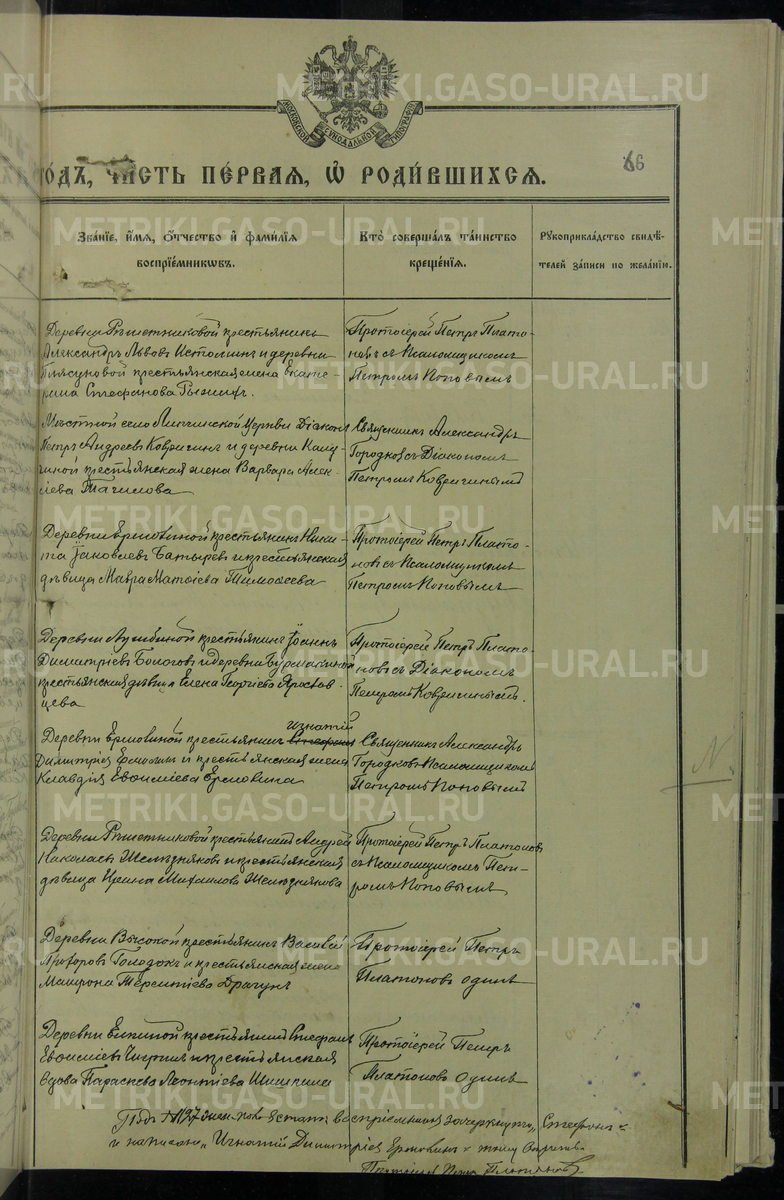 METRIKI.GASO-URAL.RU
МОСКОВСКОЙ СУНОДАЛЬНОЙ ТИПОГРАФІИ
ГОДЪ, ЧАСТЬ ПЕРВАЯ, Ѡ РОДИВШИХСЯ.
66
Званіе, имя, отчество и фамилія воспріемниковъ.
Кто совершалъ таинство крещенія.
Рукоприкладство свидѣтелей записи по желанію.
Деревни Рѣшетниковой крестьянинъ
Александръ Львовъ Истоминъ и деревни
крестьянская жена Екате-
рина Стефанова
Протоіерей Петръ Плато-
новъ съ Псаломщикомъ
Петромъ Поповымъ
Мѣстной село Липчинской Церкви Діаконъ
Петръ Андреевъ Ковригинъ и деревни
крестьянская жена Варвара Алек-
сіева
Священникъ Александръ
Городковъ съ Діакономъ
Петромъ Ковригинымъ
Деревни Ермовиной крестьянинъ Ники-
та Іаковлевъ Батыревъ и крестьянская
дѣвица Мавра Матѳіева Тимоѳеева
Протоіерей Петръ Плато-
новъ съ Псаломщикомъ
Петромъ Поповымъ
Деревни крестьянинъ Іоаннъ
Димитріевъ и деревни
крестьянская дѣвица Елена Георгіева
цева
Протоіерей Петръ Плато-
новъ съ Діакономъ
Петромъ Ковригинымъ.
Игнатій
Деревни Ермовиной крестьянинъ Стефанъ
Димитріевъ и крестьянская жена
Клавдія Евѳиміева Ермовина
Священникъ Александръ
Городковъ съ Псаломщикомъ
Петромъ Поповымъ
Деревни Рѣшетниковой крестьянинъ Андрей
Николаевъ Желѣзняковъ и крестьянская
дѣвица Ирина Михаилова Желѣзнякова
Протоіерей Петръ Платоновъ
съ Псаломщикомъ Пет-
ромъ Поповымъ
Деревни Высокой крестьянинъ Василій
Прохоровъ и крестьянская жена
Матрона Терентіева Драгунъ
Протоіерей Петръ
Платоновъ одинъ
Деревни крестьянинъ Стефанъ
Евѳиміевъ и крестьянская
вдова Параскева Леонтіева Шишкина
Протоіерей Петръ
Платоновъ одинъ
Подъ № 197 воспріемника зачеркнуто „Стефанъ“
и написано „Игнатій Димитріевъ тому вѣрить.
Протоіерей Петръ Платоновъ.